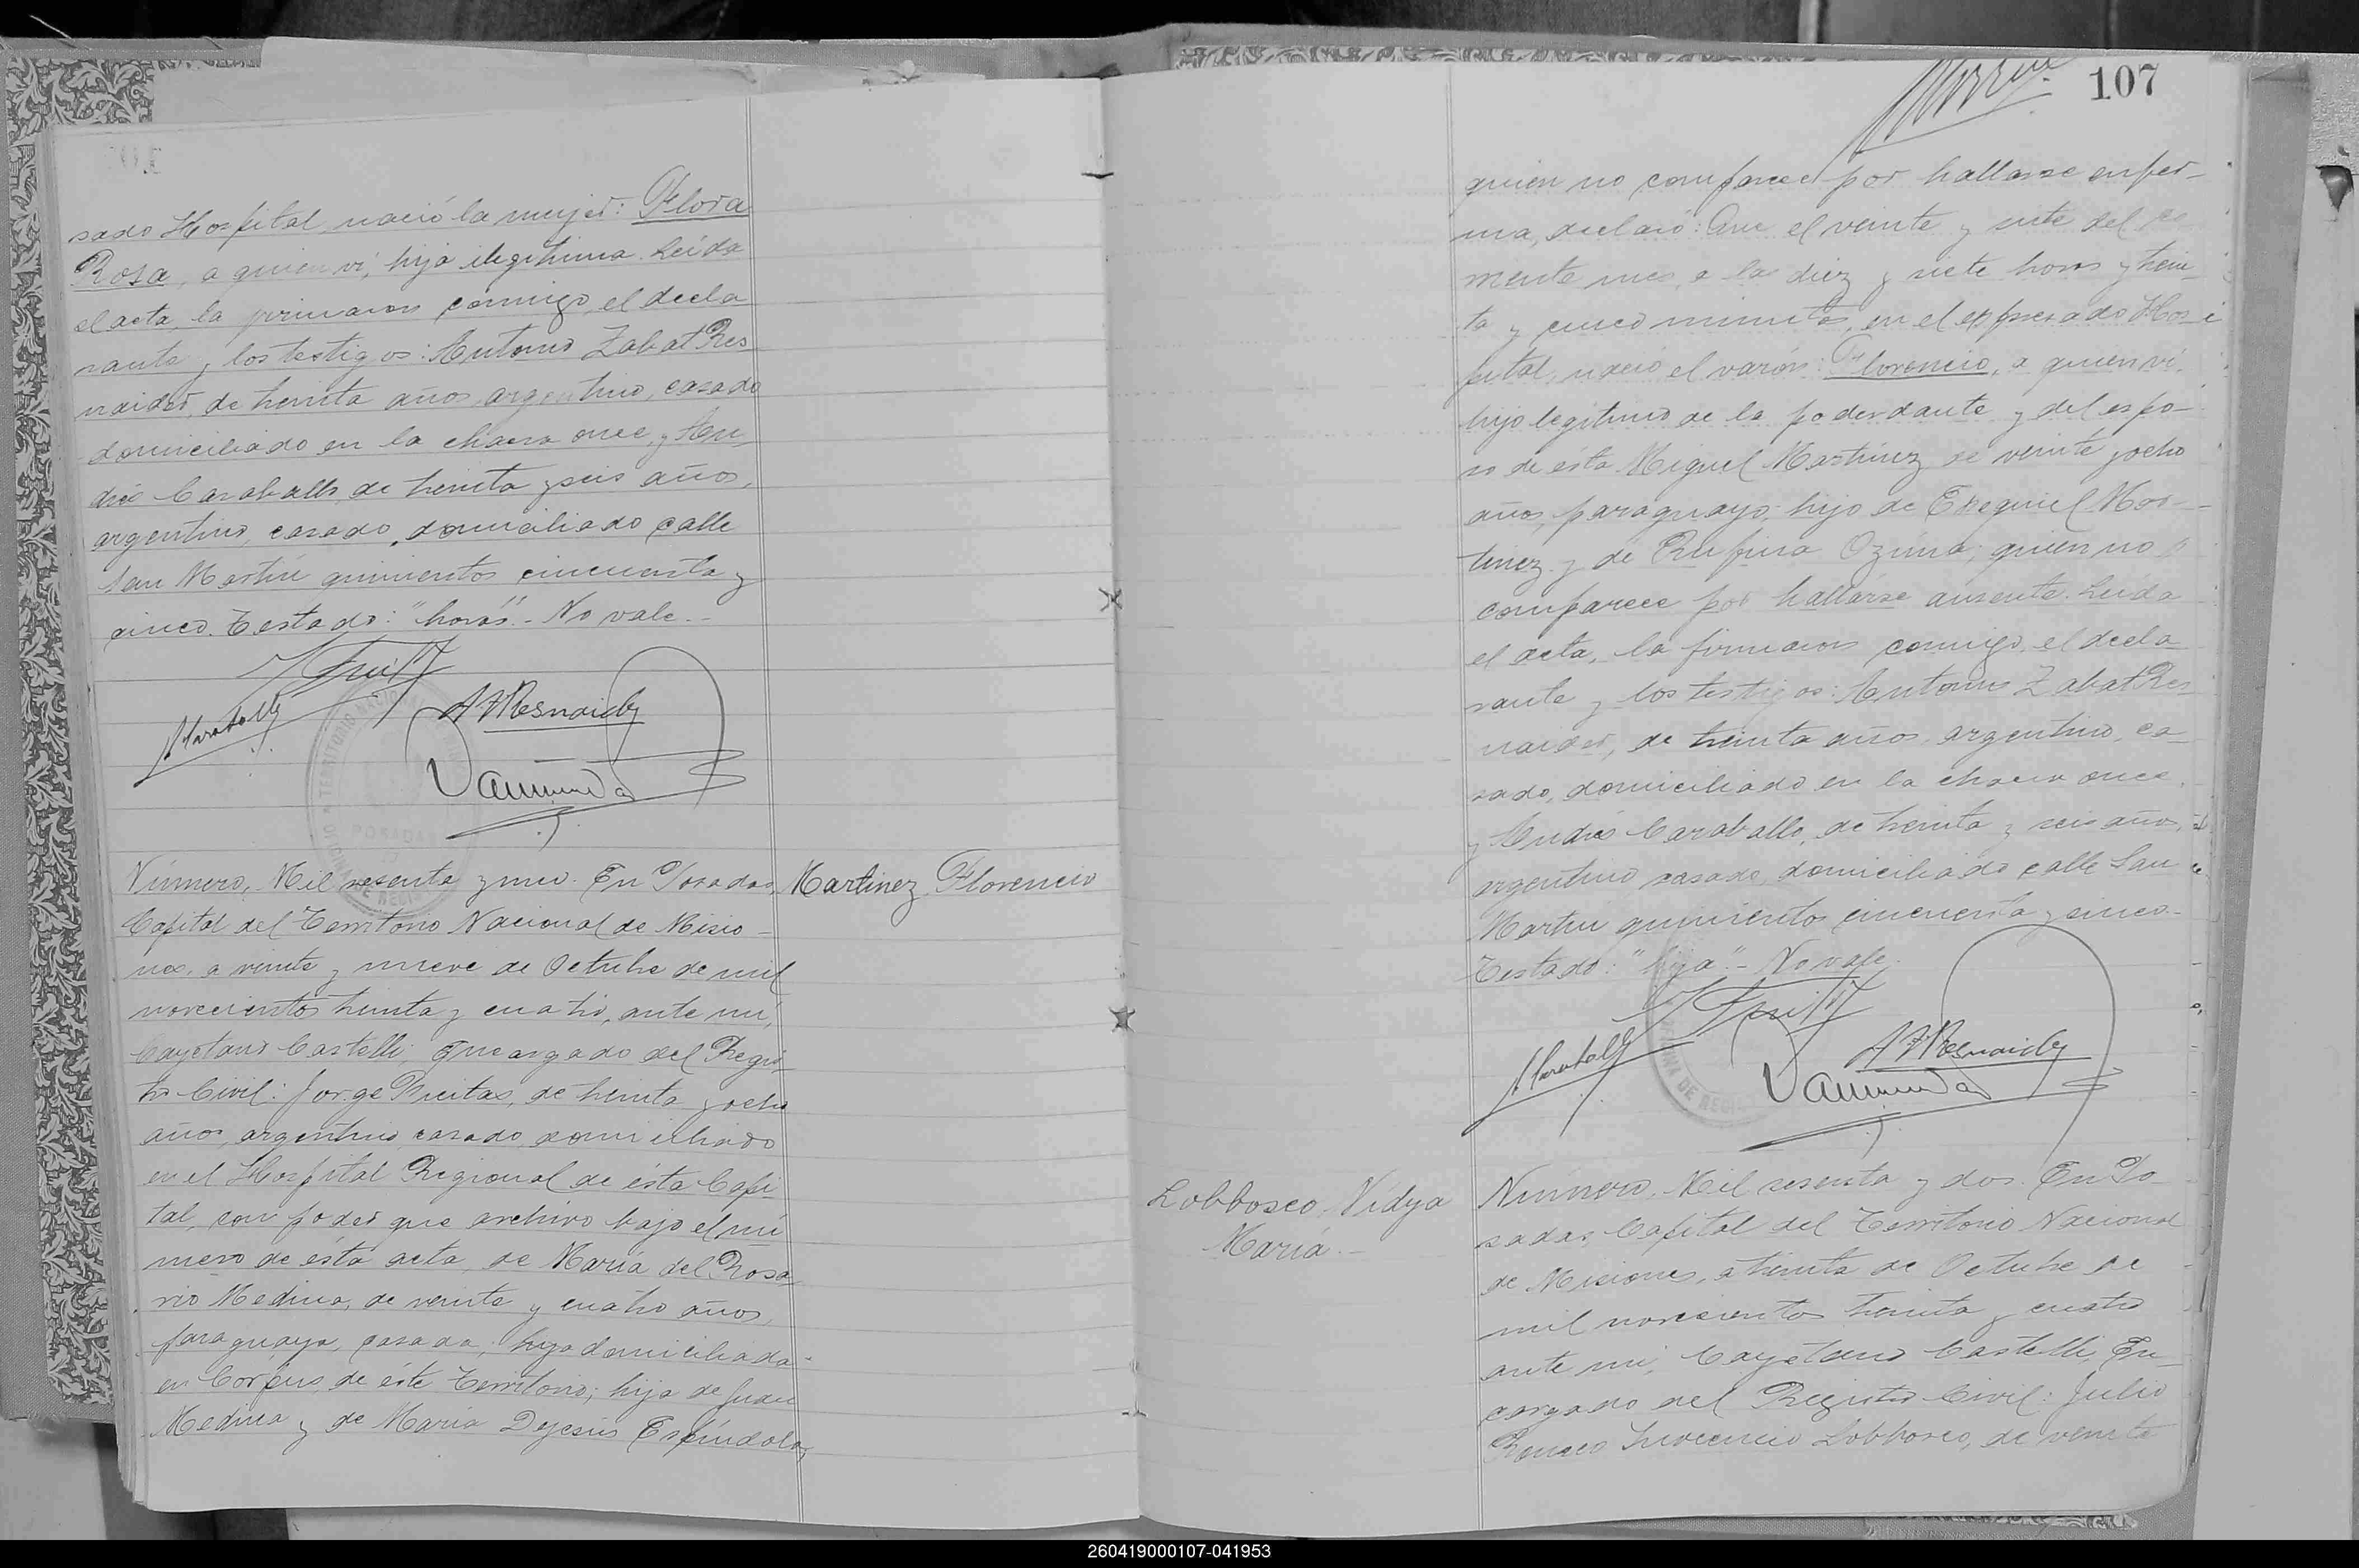 sado Hospital nació la mujer: Flora
Rosa, a quien vi, hija ilegitima. Leída
el acta, la firmaron conmigo, el decla
rante y los testigos: Antonio Zabat Res
naider, de treinta años, argentino, casado
domiciliado en la chacra once, y An
drés Caraballo, de treinta y seis años,
argentino, casado, domiciliado calle
San Martín quinientos cincuenta y
cinco. Testado: "horas" - No vale. -
POSADAS
Número, Mil sesenta y uno. En Posadas,
Martinez Florencio
Capital del Territorio Nacional de Misio-
nes, a veinte y nueve de Octubre de mil
novecientos treinta y cuatro, ante mí,
Cayetano Castelli, Encargado del Regis
tro Civil: Jorge Freitas, de treinta y ocho
años, argentino, casado, domiciliado
en el Hospital Regional de ésta Capi
tal, con poder que archivo bajo el nú
mero de ésta acta, de María del Rosa
rio Medina, de veinte y cuatro años,
paraguaya, casada, hija domiciliada
en Corpus, de éste Territorio; hija de Juan
Medina y de María Dejesús Espíndola,
107
quien no comparece por hallarse enfer-
ma, declaró: Que el veinte y siete del
mente mes, a las diez y siete horas y trein
ta y cinco minutos, en el expresado Hos-
pital, nació el varón: Florencio, a quien vi,
hijo legítimo de la poderdante y del espo-
so de ésta Miguel Martínez de veinte y ocho
años, paraguayo, hijo de Exequiel Mar-
tinez y de Rufina Ozuna; quien no
comparece por hallarse ausente. Leída
el acta, la firmaron conmigo, el decla
rante y los testigos: Antonio Zabat Res
naider, de treinta años, argentino, ca-
sado, domiciliado en la chacra once,
y Andrés Caraballo, de treinta y seis años,
argentino, casado, domiciliado calle San
Martín quinientos cincuenta y cinco.-
Testado: "hija" - No vale.
Lobbosco Vidya
María. -
Número, Mil sesenta y dos. En Po
sadas, Capital del Territorio Nacional
de Misiones, a treinta de Octubre de
mil novecientos treinta y cuatro
ante mí, Cayetano Castelli, En-
cargado del Registro Civil: Julio
Inocencio Lobbosco, de veinte
260419000107-041953